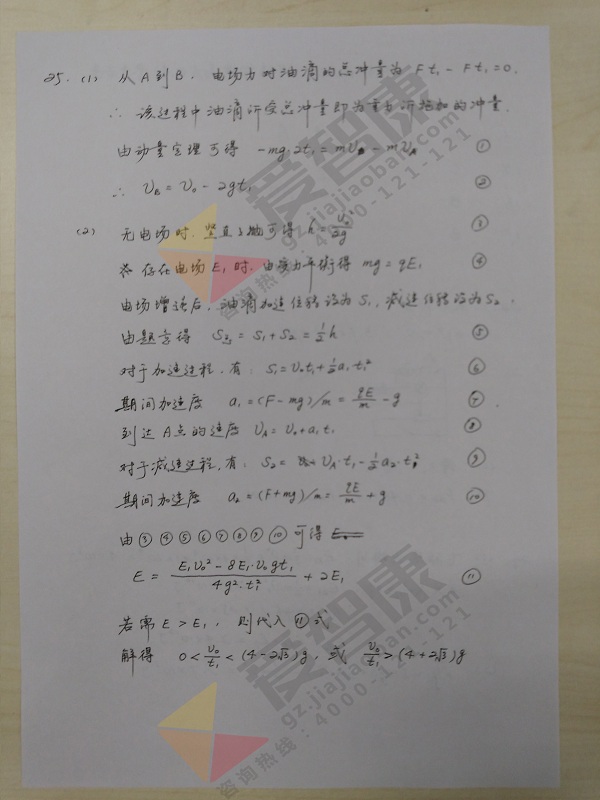 25. (1) 从A到B，电场力对油滴的总冲量为 Ft₁ - Ft₁ = 0.
∴ 该过程中油滴所受总冲量即为重力所施加的冲量.
由动量定理可得 -mg·2t₁ = mUB - mUA ①
∴ UB = U0 - 2gt₁ ②
(2) 无电场时，竖直上抛可得 h = U0²/2g ③
存在电场E₁时，由受力平衡得 mg = qE₁ ④
电场增强后，油滴加速位移设为S₁，减速位移设为S₂.
由题意得 S = S₁ + S₂ = ½h ⑤
对于加速过程，有: S₁ = U0t₁ + ½a₁t₁² ⑥
期间加速度 a₁ = (F - mg)/m = qE/m - g ⑦
到达A点的速度 UA = U0 + a₁t₁ ⑧
对于减速过程，有: S₂ = UA·t₁ - ½a₂·t₁² ⑨
期间加速度 a₂ = (F + mg)/m = qE/m + g ⑩
由③④⑤⑥⑦⑧⑨⑩可得
E = (E₁U0² - 8E₁·U0gt₁)/(4g²·t₁²) + 2E₁ ⑪
若需 E > E₁，则代入⑪式
解得 0 < U0/t₁ < (4 - 2√3)g，或 U0/t₁ > (4 + 2√3)g
爱智康
gz.jiajiaoban.com
咨询热线：4000-121-121
爱智康
gz.jiajiaoban.com
咨询热线：4000-121-121